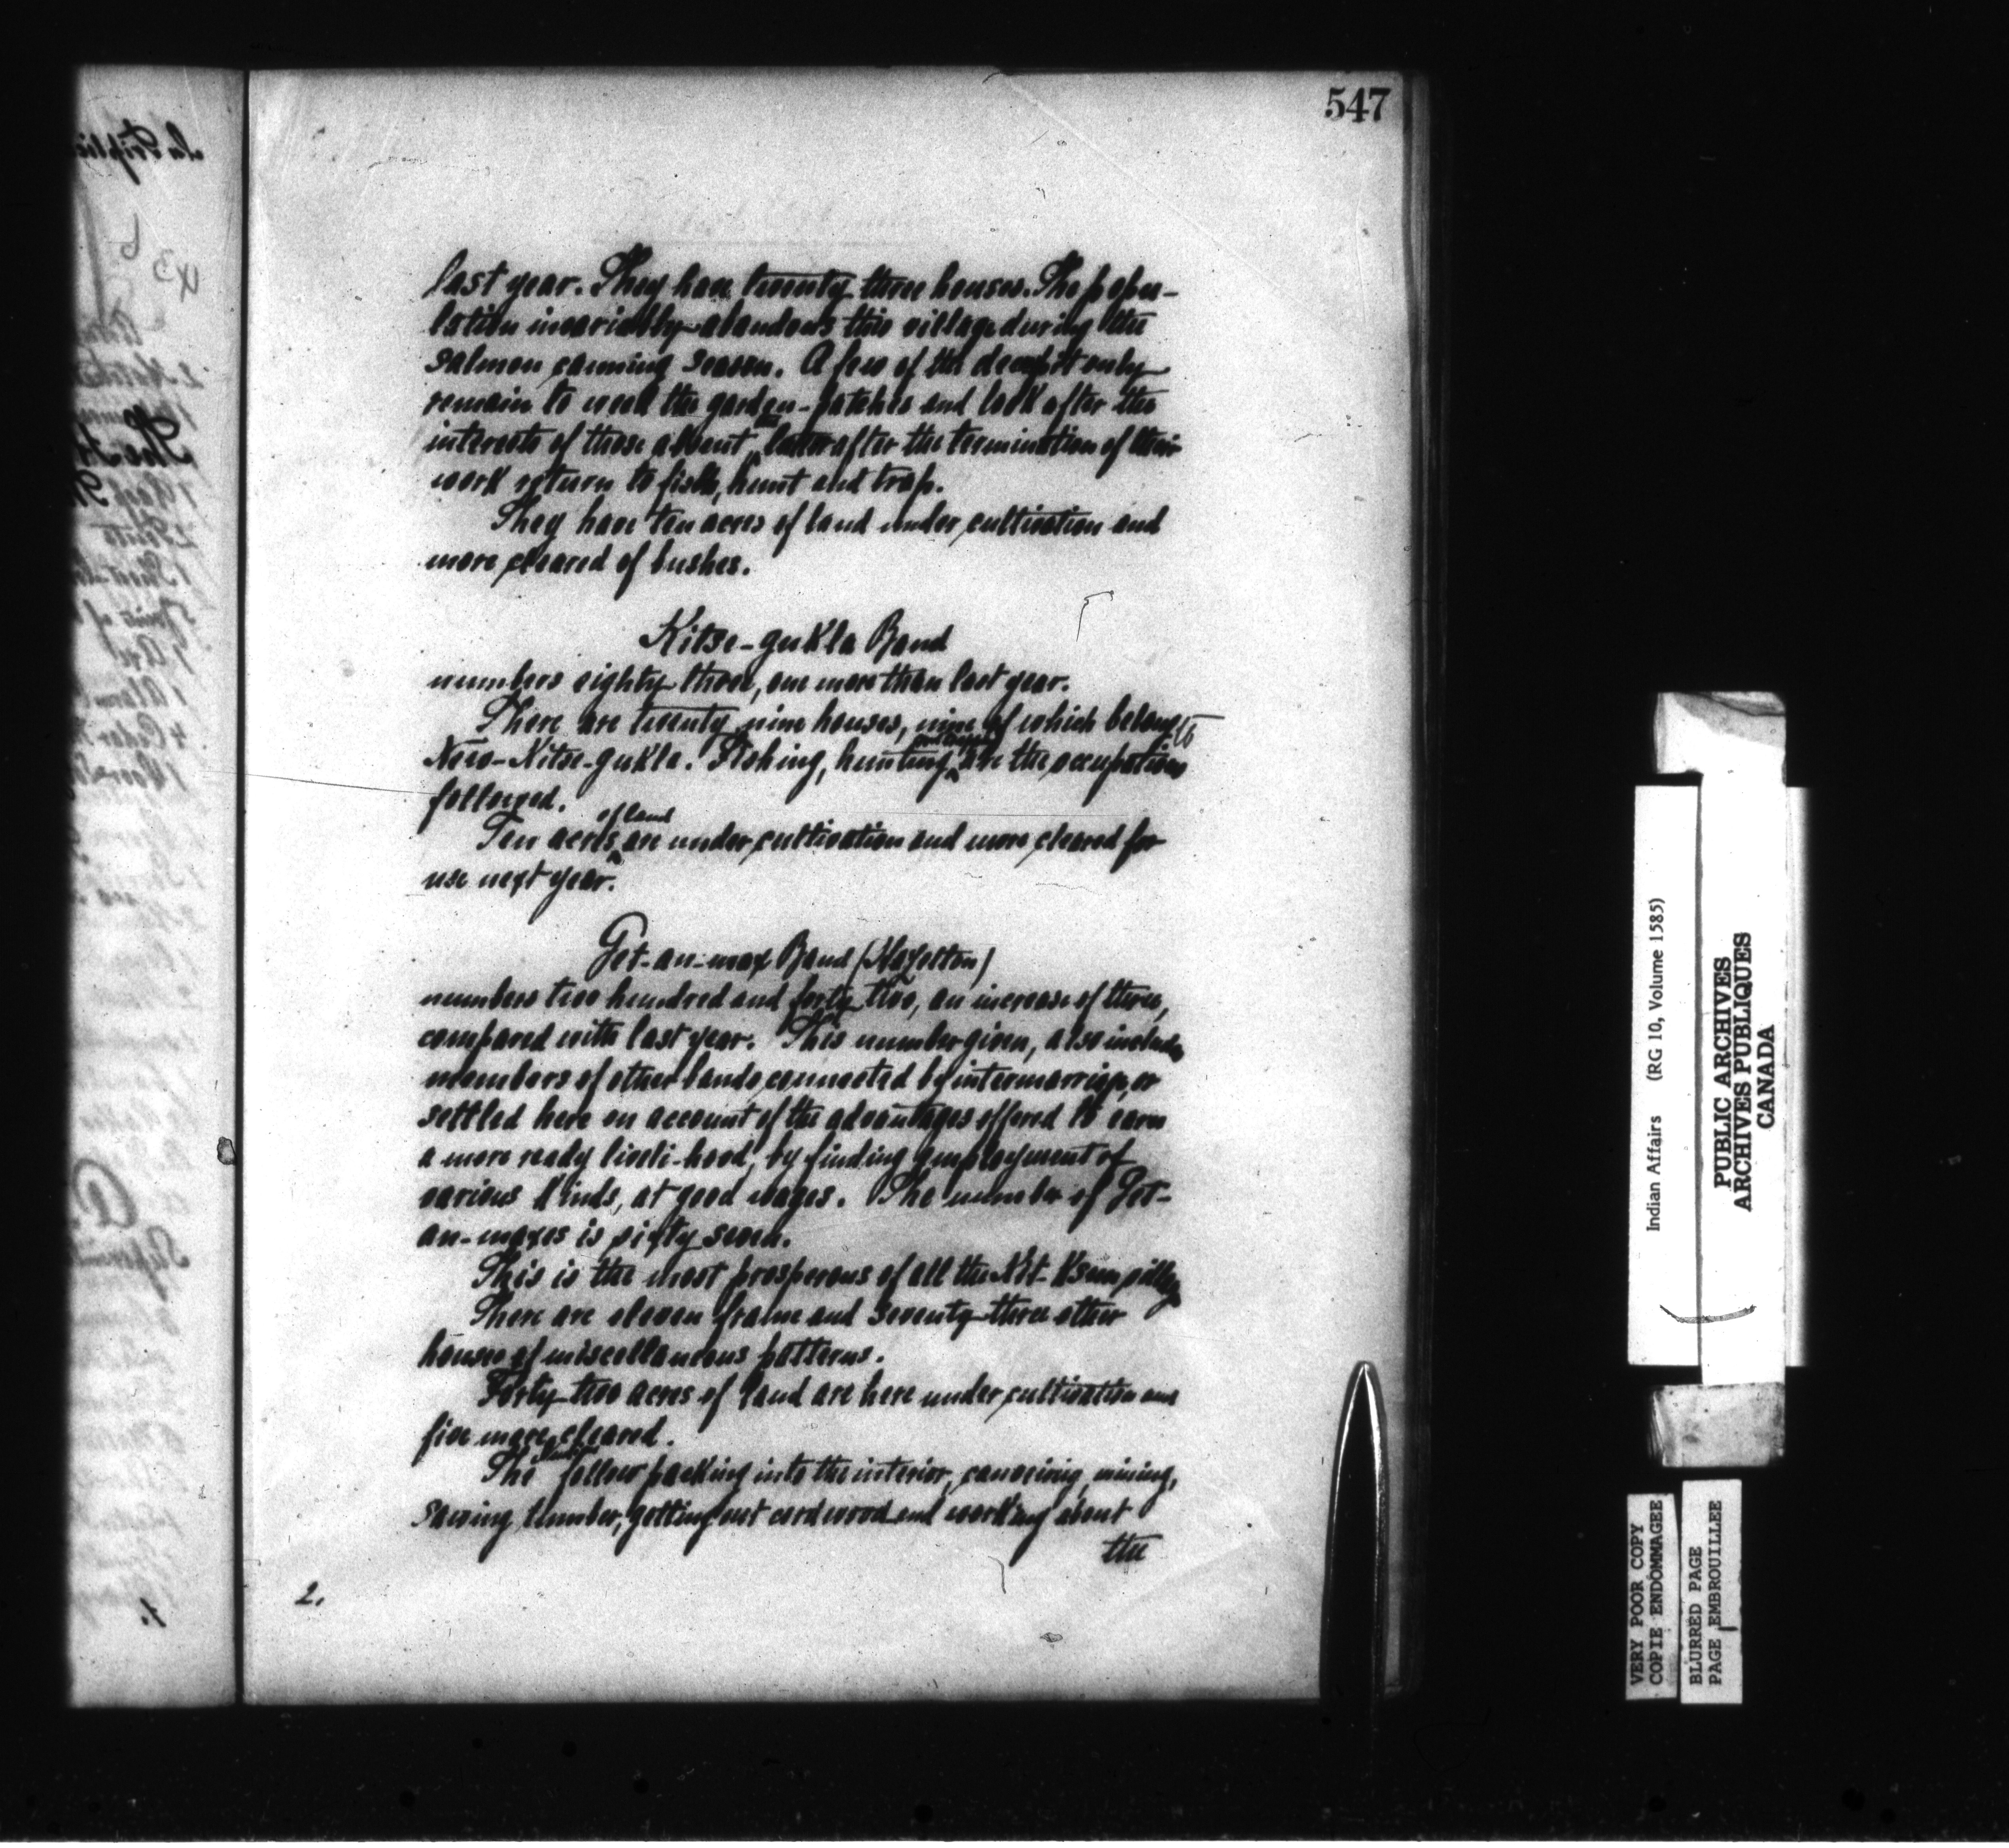 547
last year. They have twenty three houses. The popu-
lation invariably abandons this village during the
salmon canning season. A few of the decrepit only
remain to weed the garden-patches and look after the
interests of those absent, the latter after the termination of their
work return to fish, hunt and trap.
They have ten acres of land under cultivation and
more cleared of bushes.
Kitse-gukla Band
numbers eighty three, one more than last year.
There are twenty nine houses, nine of which belong to
New-Kitse-gukla. Fishing, hunting are the occupations
followed.
Ten acres of land are under cultivation and more cleared for
use next year.
Get-an-max Band (Hazelton)
numbers two hundred and forty two, an increase of three,
compared with last year. This number given, also includes
members of other bands connected by intermarriage, or
settled here on account of the advantages offered to earn
a more ready liveli-hood, by finding employment of
various kinds, at good wages. The number of Get-
an-maxes is sixty seven.
This is the most prosperous of all the Kit-Ksun villages
There are eleven frame and seventy-three other
houses of miscellaneous patterns.
Forty two acres of land are here under cultivation and
five more cleared.
The follow packing into the interior, canoeing, mining,
sawing lumber, getting out cordwood and working about
the
2.
Indian Affairs (RG 10, Volume 1585)
PUBLIC ARCHIVES
ARCHIVES PUBLIQUES
CANADA
VERY POOR COPY
COPIE ENDOMMAGEE
BLURRED PAGE
PAGE EMBROUILLEE